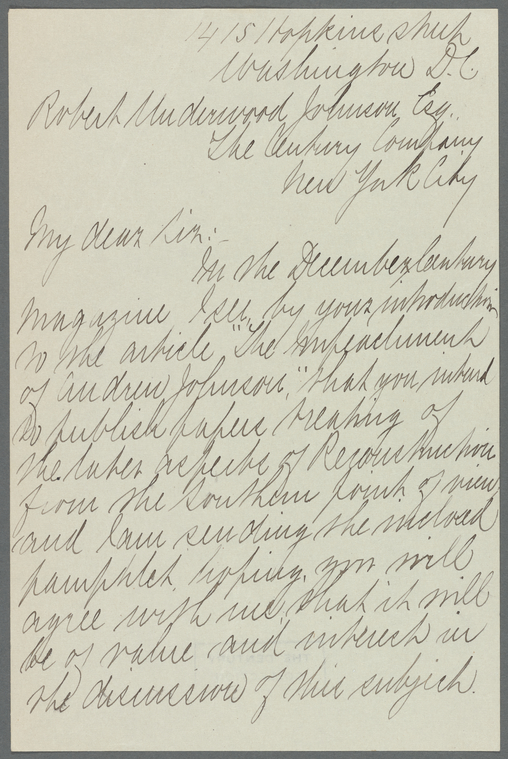 1415 Hopkins street
Washington D.C.
Robert Underwood Johnson Esq.
The Century Company
New York City
My dear Sir:-
In the December Century
Magazine, I see, by your introduction
to the article "The Impeachment
of Andrew Johnson," that you intend
to publish papers treating of
the later aspects of Reconstruction
from the Southern point of view,
and I am sending the inclosed
pamphlet, hoping you will
agree with me that it will
be of value and interest in
the discussion of this subject.